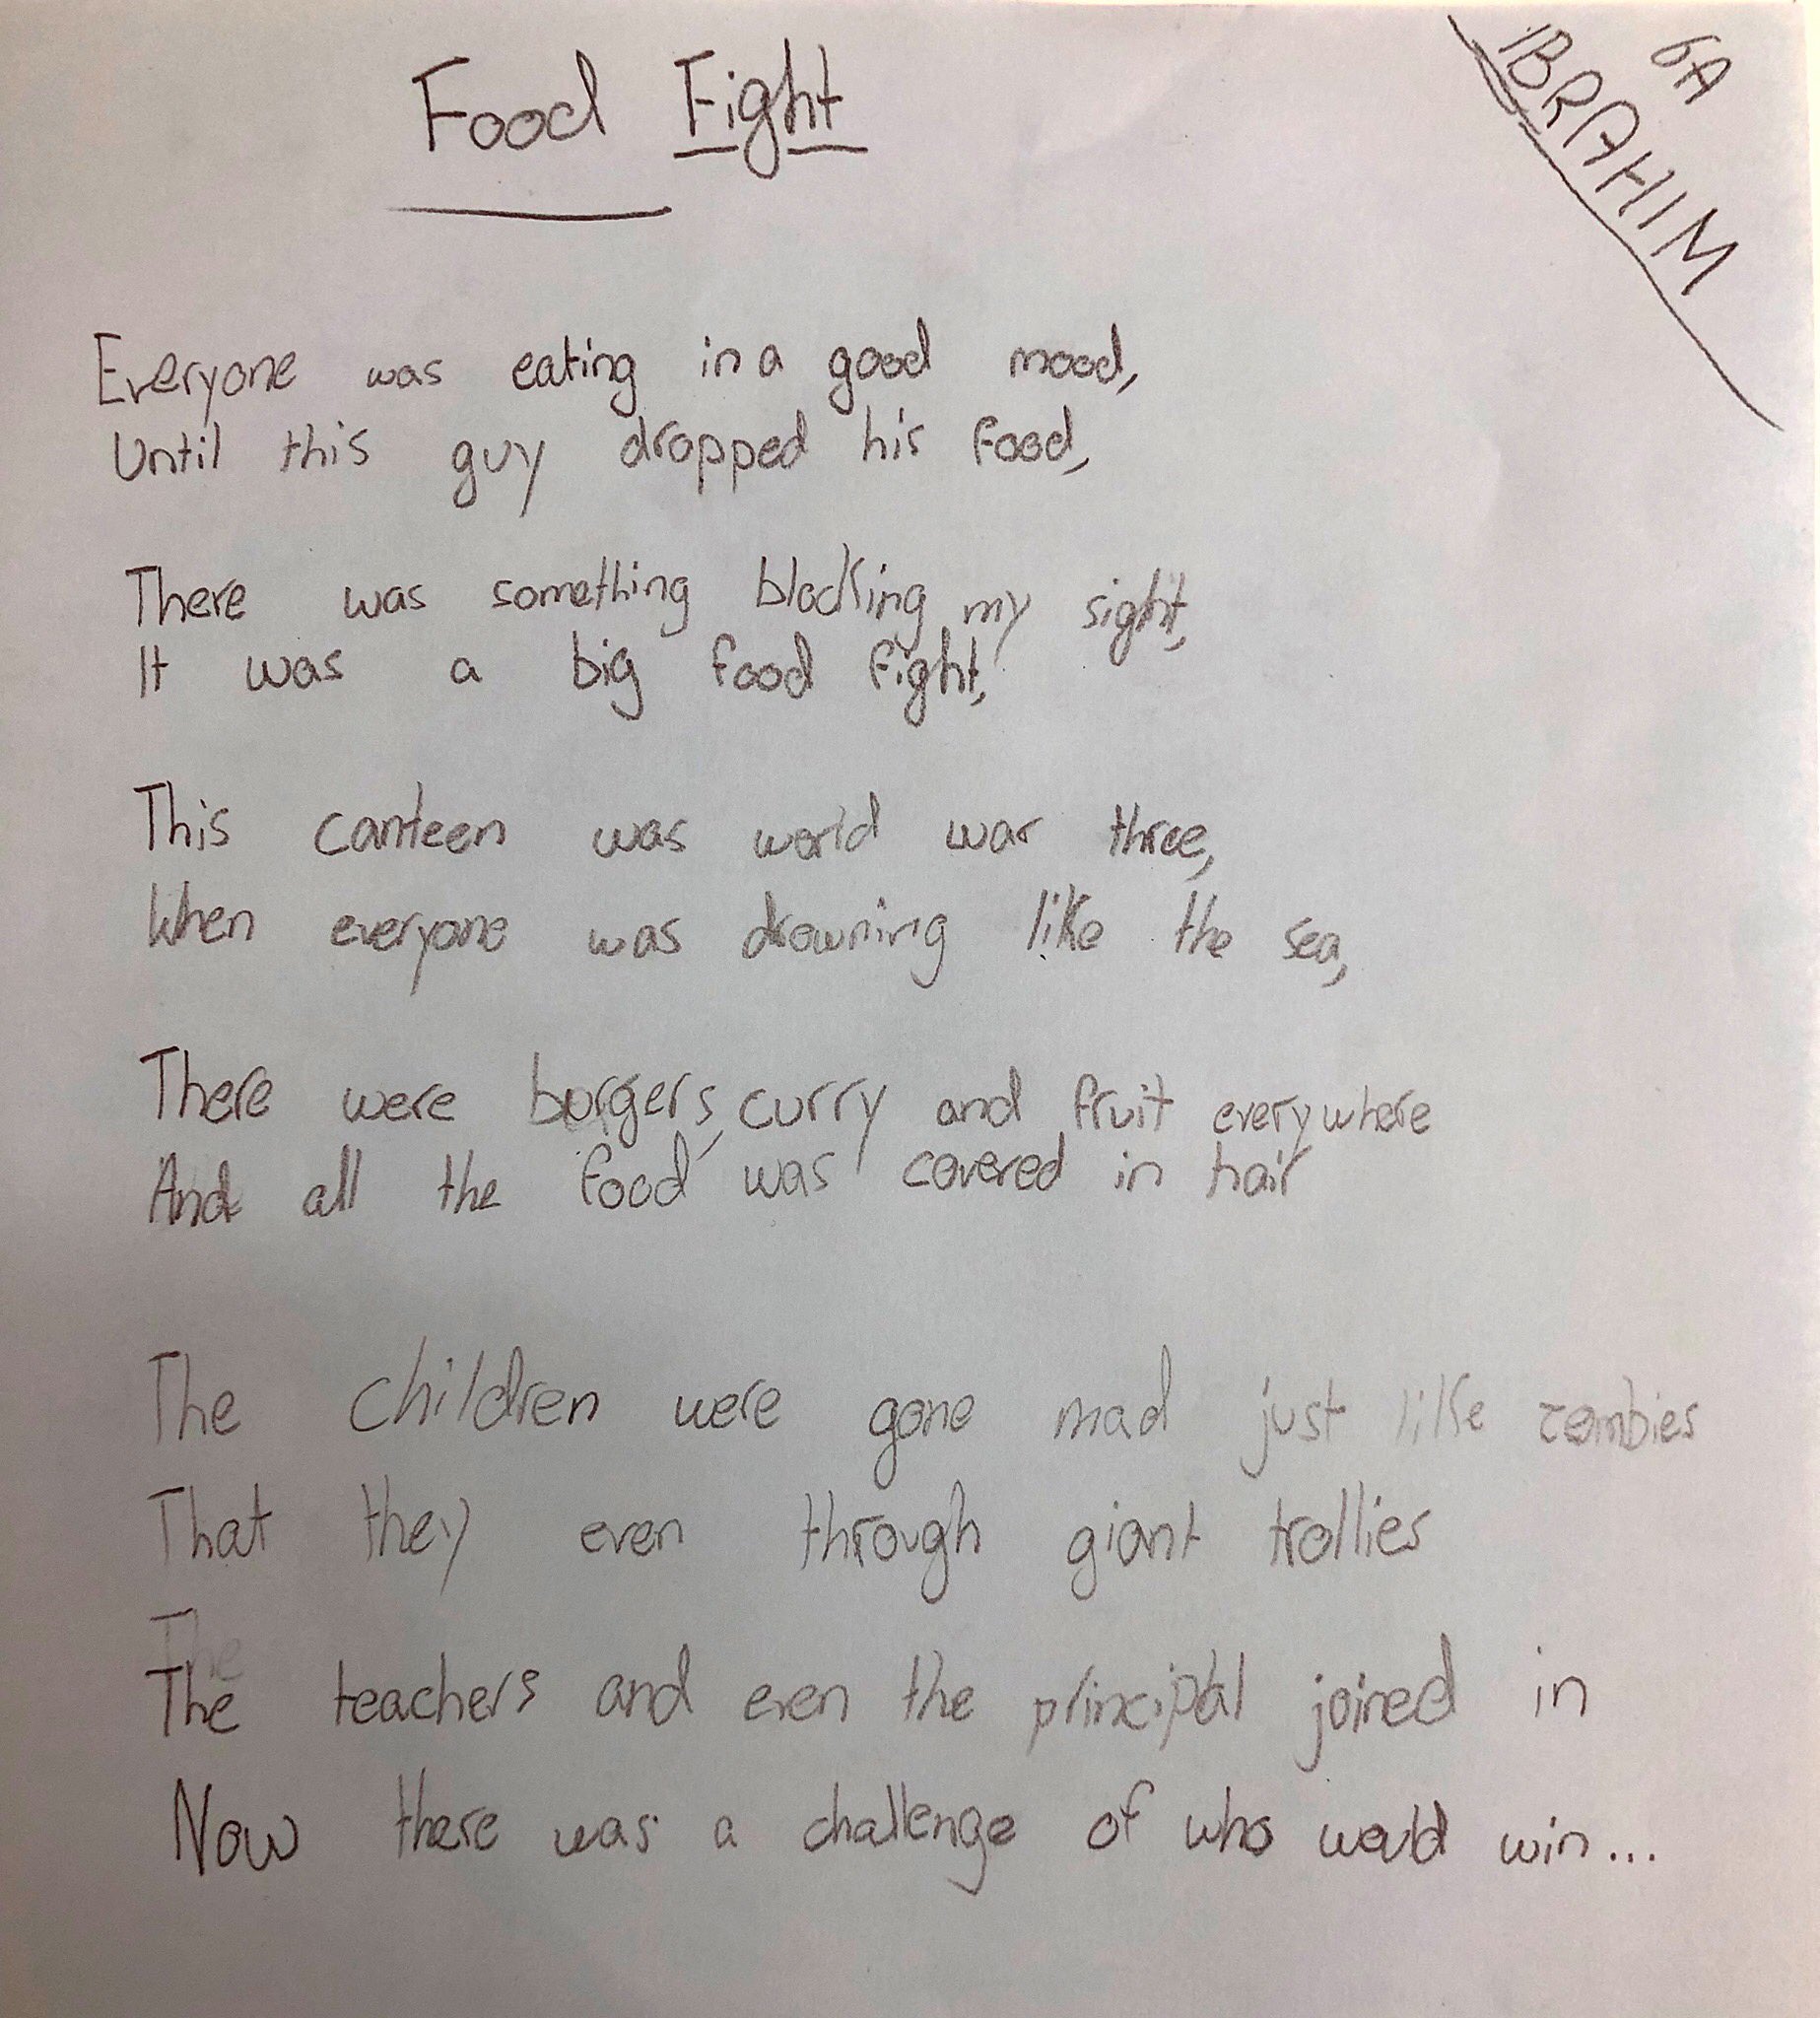 6A
IBRAHIM
Food Fight
Everyone was eating in a good mood,
Until this guy dropped his food,
There was something blocking my sight,
It was a big food fight,
This canteen was world war three,
When everyone was drowning like the sea,
There were burgers, curry and fruit everywhere
And all the food was covered in hair
The children were gone mad just like zombies
That they even through giant trollies
The
The teachers and even the principal joined in
Now there was a challenge of who would win...